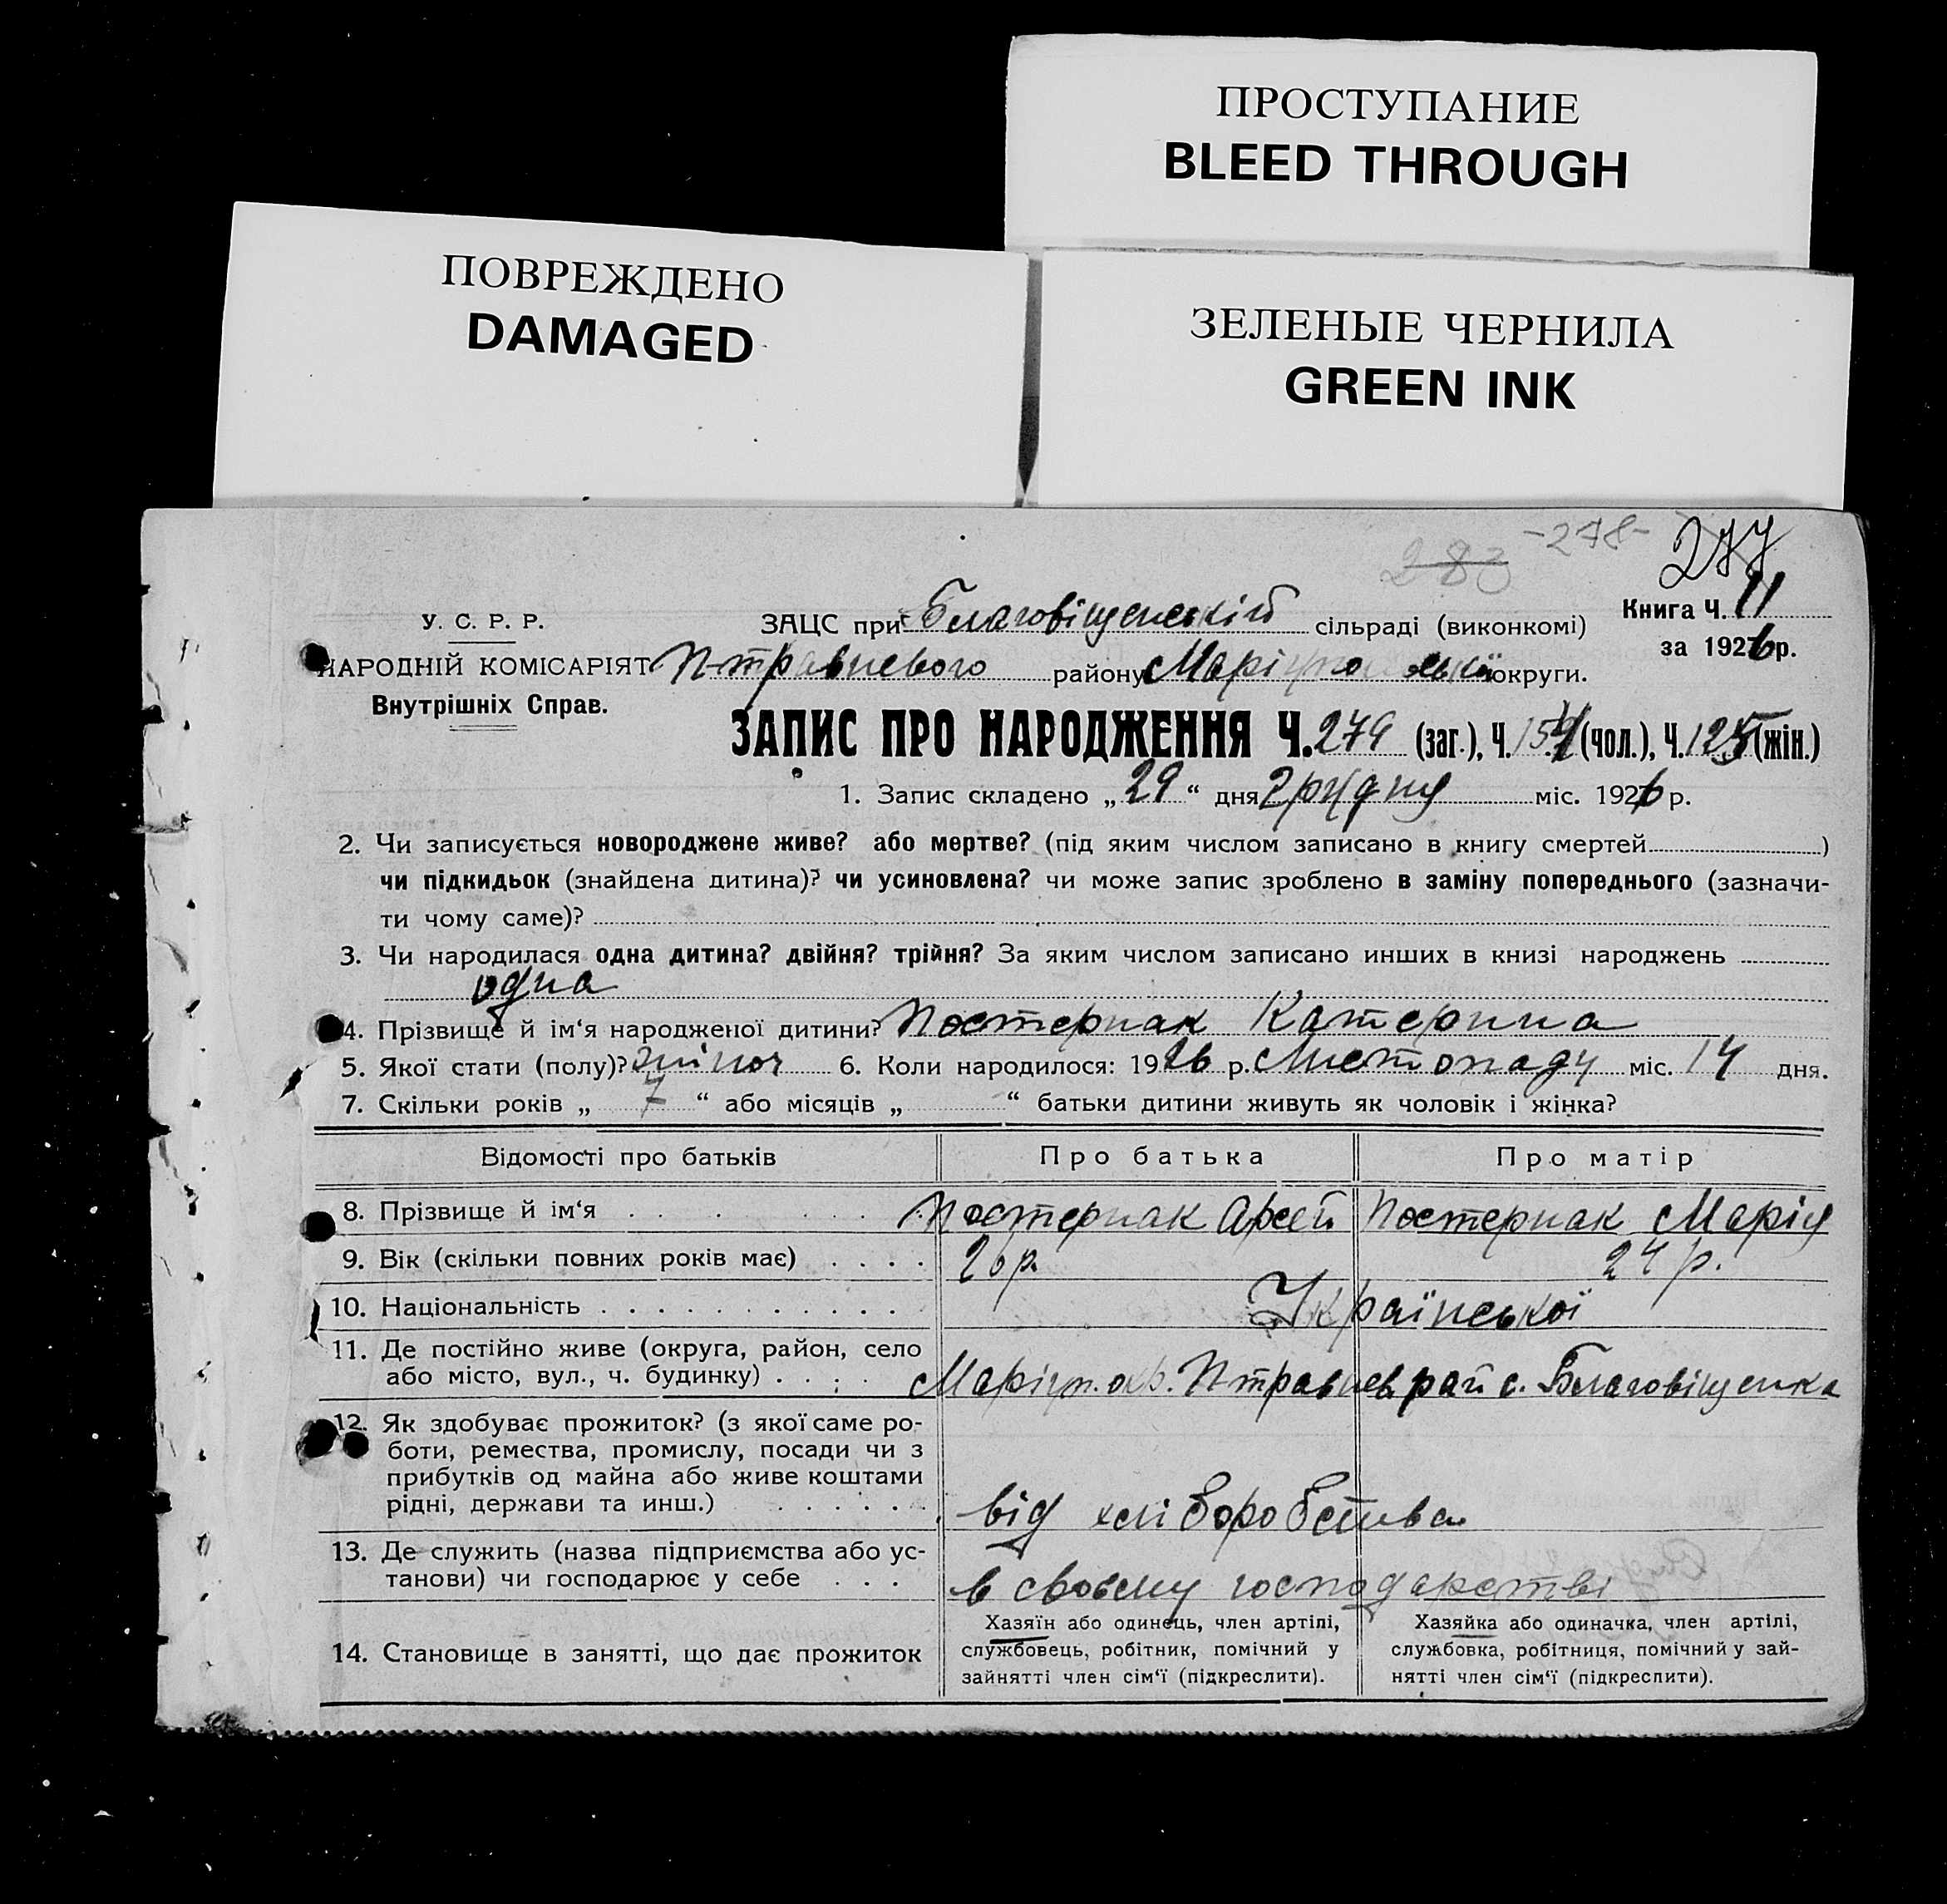 ПРОСТУПАНИЕ
BLEED THROUGH
ПОВРЕЖДЕНО
DAMAGED
ЗЕЛЕНЫЕ ЧЕРНИЛА
GREEN INK
283 -278- 277
У. С. Р. Р.
НАРОДНІЙ КОМІСАРІЯТ
Внутрішніх Справ.
ЗАЦС при Благовіщенській сільраді (виконкомі)
Книга Ч. 11
за 1926 р.
П-травневого району Маріупольської округи.
ЗАПИС ПРО НАРОДЖЕННЯ Ч. 279 (заг.), Ч. 154 (чол.), Ч. 125 (жін.)
1. Запис складено „ 29 “ дня грудня міс. 1926 р.
2. Чи записується новороджене живе? або мертве? (під яким числом записано в книгу смертей )
чи підкидьок (знайдена дитина)? чи усиновлена? чи може запис зроблено в заміну попереднього (зазначи-
ти чому саме)?
3. Чи народилася одна дитина? двійня? трійня? За яким числом записано инших в книзі народжень
одна
4. Прізвище й ім‘я народженої дитини? Постернак Катерина
5. Якої стати (полу)? жіноч 6. Коли народилося: 1926 р. Листопаду міс. 14 дня.
7. Скільки років „ 7 “ або місяців „ “ батьки дитини живуть як чоловік і жінка?
Відомості про батьків Про батька Про матір
8. Прізвище й ім‘я Постернак Арсей Постернак Марія
9. Вік (скільки повних років має) 26 р. 24 р.
10. Національність Української
11. Де постійно живе (округа, район, село
або місто, вул., ч. будинку) Маріуп. окр. П-травнев. рай с. Благовіщенка
12. Як здобуває прожиток? (з якої саме ро-
боти, ремества, промислу, посади чи з
прибутків од майна або живе коштами
рідні, держави та инш.) від хліборобства
13. Де служить (назва підприємства або ус-
танови) чи господарює у себе в своєму господарстві
14. Становище в занятті, що дає прожиток
Хазяїн або одинець, член артілі,
службовець, робітник, помічний у
зайнятті член сім‘ї (підкреслити).
Хазяйка або одиначка, член артілі,
службовка, робітниця, помічний у зай-
нятті член сім‘ї (підкреслити).